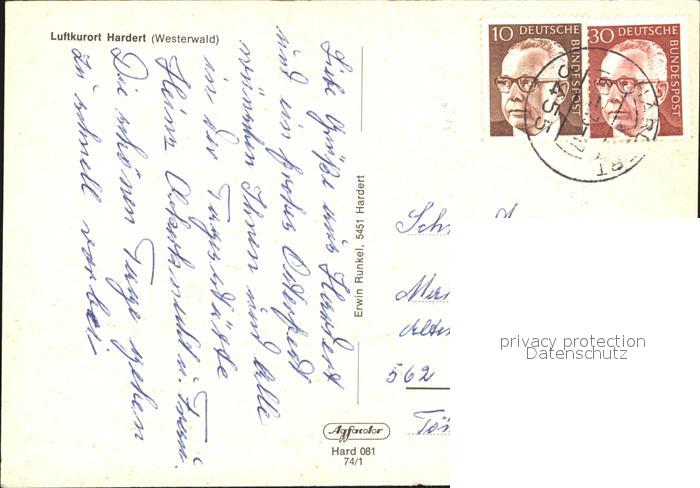 Luftkurort Hardert (Westerwald)
Liebe Grüße aus Hardert
und ein frohes Osterfest
wünschen Ihnen und alle
in der Tagesstätte
Heinz u. Frau.
Die schönen Tage gehen
zu schnell vorbei.
Erwin Runkel, 5451 Hardert
Agfacolor
Hard 081
74/1
10 DEUTSCHE BUNDESPOST
30 DEUTSCHE BUNDESPOST
HARDERT
545
562
privacy protection
Datenschutz